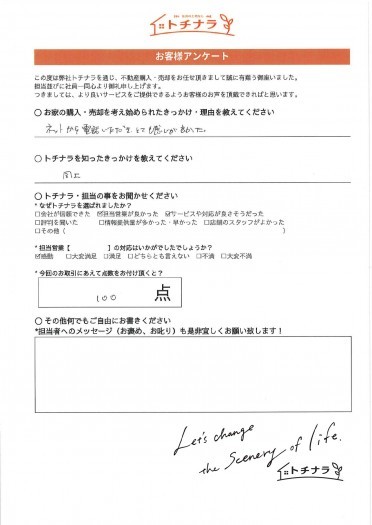 トチナラ
お客様アンケート
この度は弊社トチナラを通じ、不動産購入・売却をお任せ頂きまして誠に有難う御座いました。
担当並びに社員一同心より御礼申し上げます。
つきましては、より良いサービスをご提供できるようお客様のお声を頂戴できればと思います。
○ お家の購入・売却を考え始められたきっかけ・理由を教えてください
ネットから電話いただき
○ トチナラを知ったきっかけを教えてください
同上
○ トチナラ・担当の事をお聞かせください
* なぜトチナラを選ばれましたか？
□会社が信頼できた ☑担当営業が良かった ☑サービスや対応が良さそうだった
□評判を聞いた □情報提供量が多かった・早かった □店舗のスタッフがよかった
□その他（ ）
* 担当営業【 】の対応はいかがでしたでしょうか？
☑感動 □大変満足 □満足 □どちらとも言えない □不満 □大変不満
* 今回のお取引にあえて点数をお付け頂くと？
100 点
○ その他何でもご自由にお書きください
*担当者へのメッセージ（お褒め、お叱り）も是非宜しくお願い致します！
Let's change
the Scenery of life.
トチナラ